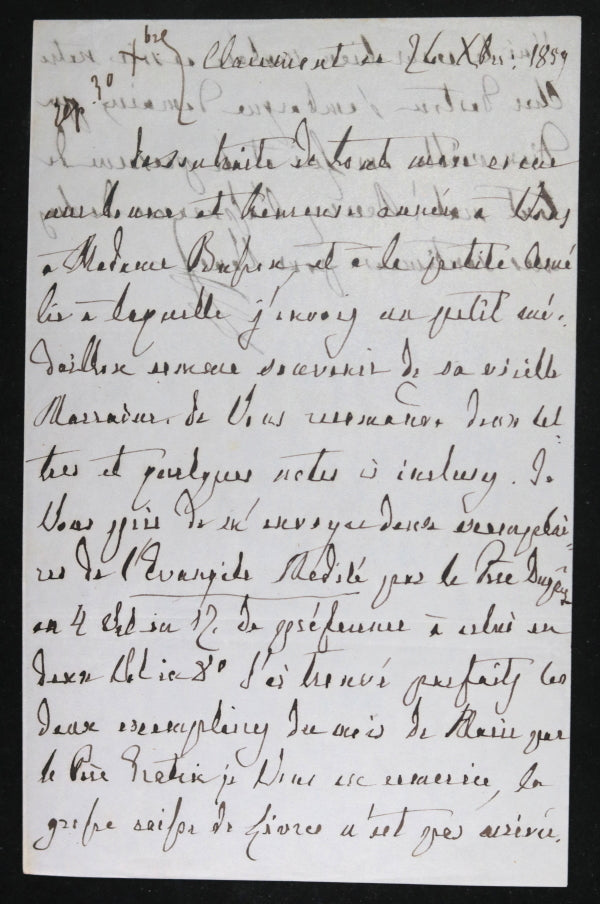 30 Xbre
Clermont ce 26 Xbre 1859
Je souhaite de tout mon cœur
une bonne et heureuse année à Vous
à Madame et à la petite Amé
lie à laquelle j'envoie un petit mé.
daillon comme souvenir de sa vieille
Marraine. Je Vous recommande deux let
tres et quelques notes ci incluses. Je
Vous prie de m'envoyer deux exemplai-
res de l'Evangile Médité par le Père
en 4 Vol in 12. de préférence à celui en
deux Vol in 8° J'ai trouvé parfaits les
deux exemplaires du mois de Marie par
le Père je Vous en remercie, la
grosse caisse de Livres n'est pas arrivée.